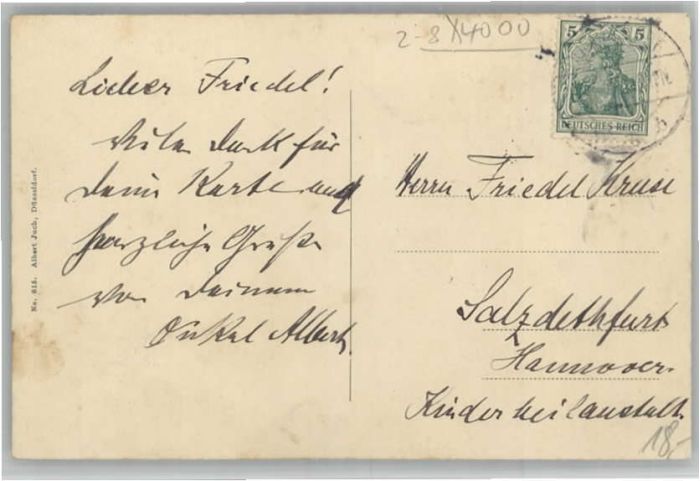 2-8 X4000
5 5
DEUTSCHES REICH
Lieber Friedel!
Vielen Dank für
Deine Karte und
herzliche Grüße
von Deinem
Onkel Albert.
Herrn Friedel Kruse
Salzdethfurt
Hannover.
Kinderheilanstalt
18,-
No. 615. Albert Juch, Düsseldorf.